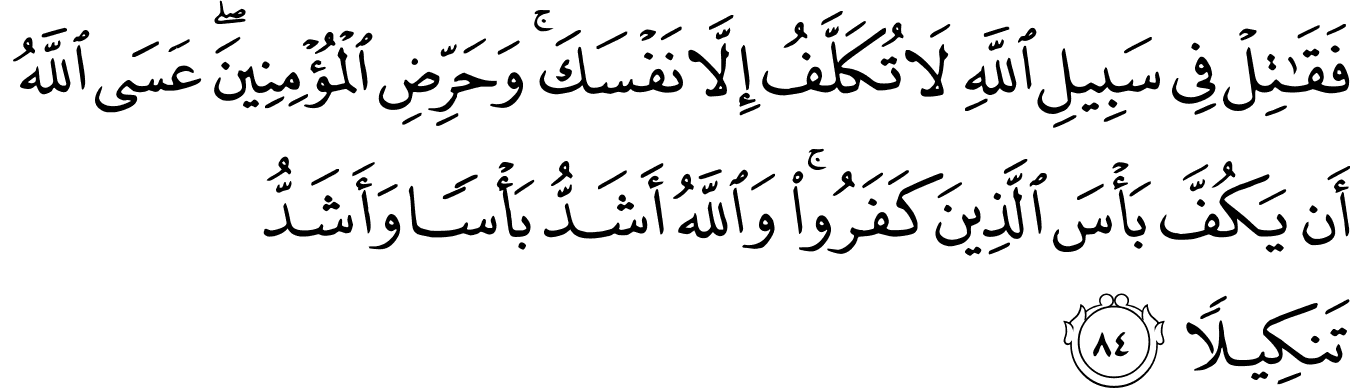 فَقَـٰتِلْ فِى سَبِيلِ ٱللَّهِ لَا تُكَلَّفُ إِلَّا نَفْسَكَ ۚ وَحَرِّضِ ٱلْمُؤْمِنِينَ ۖ عَسَى ٱللَّهُ
أَن يَكُفَّ بَأْسَ ٱلَّذِينَ كَفَرُوا۟ ۚ وَٱللَّهُ أَشَدُّ بَأْسًا وَأَشَدُّ
تَنكِيلًا ٨٤